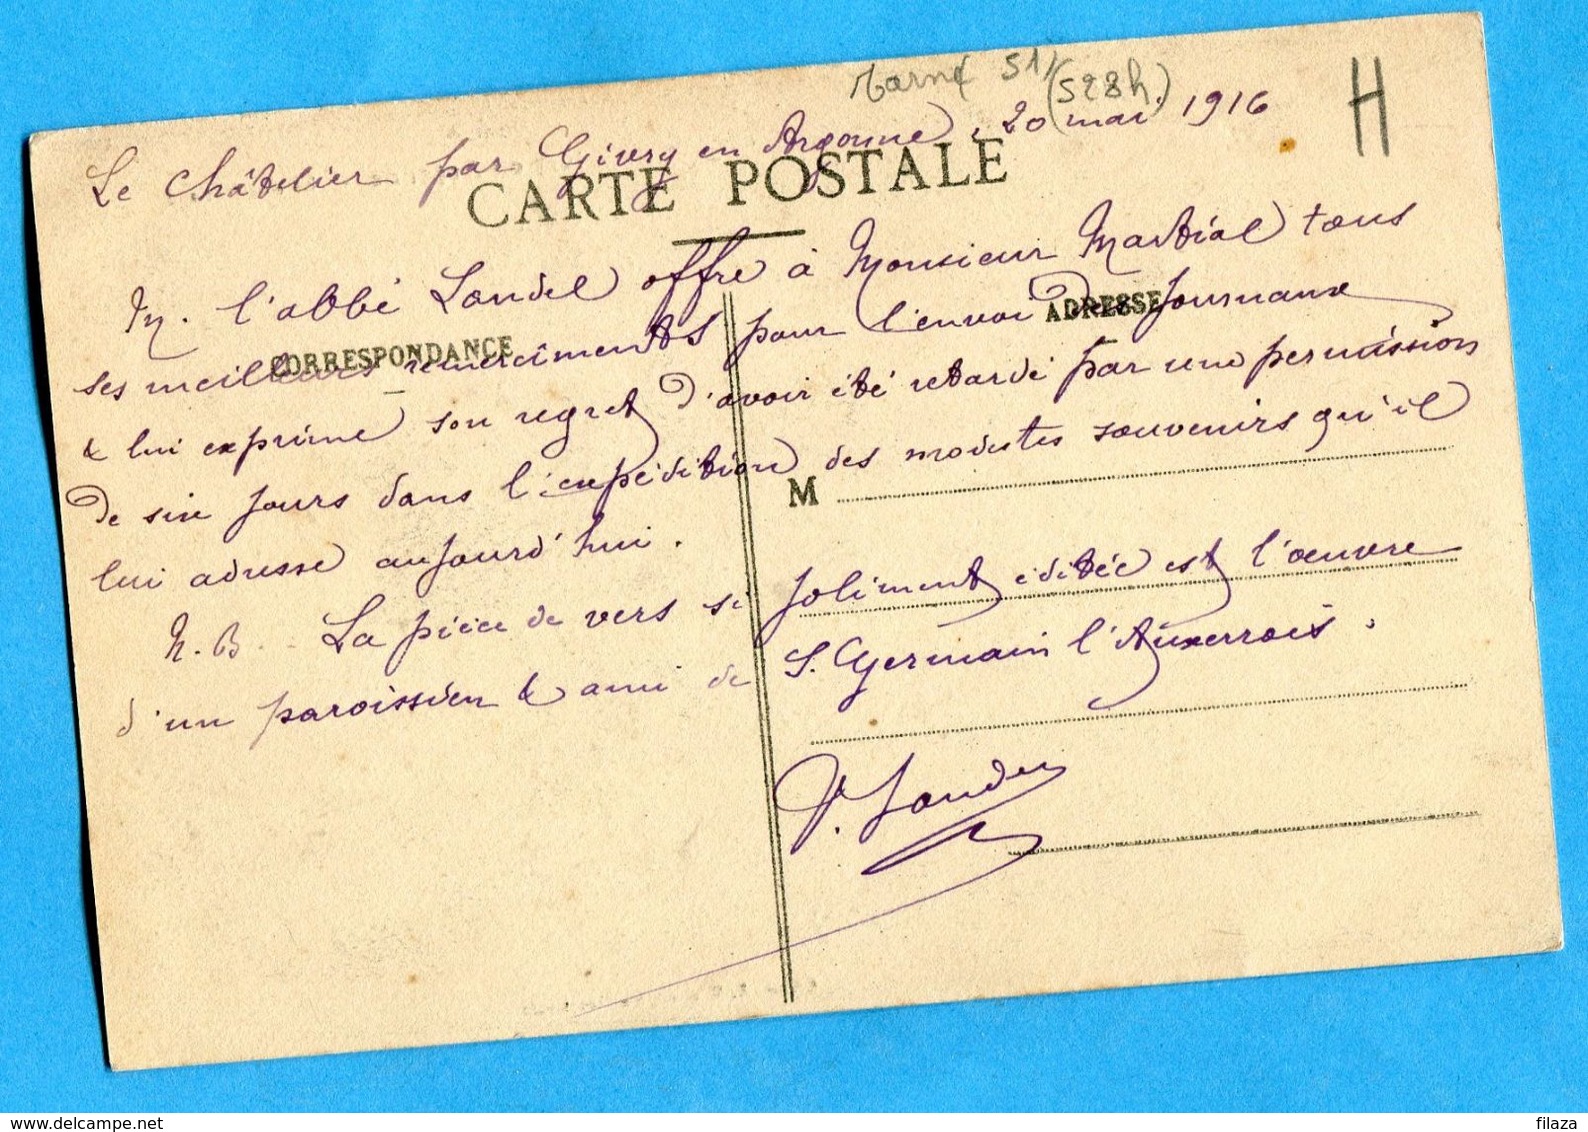 Marne 51 (528h)
H
Le Châtelier par Givry en Argonne, 20 mai 1916
CARTE POSTALE
M. l'abbé Landel offre à Monsieur Martial tous
CORRESPONDANCE
ADRESSE
ses meilleurs remerciments pour l'envoi des journaux
& lui exprime son regret d'avoir été retardé par une permission
de six jours dans l'expédition des modestes souvenirs qu'il
M
lui adresse aujourd'hui.
N.B. - La pièce de vers si joliment éditée est l'œuvre
d'un paroissien & ami de S. Germain l'Auxerrois.
www.delcampe.net
filaza